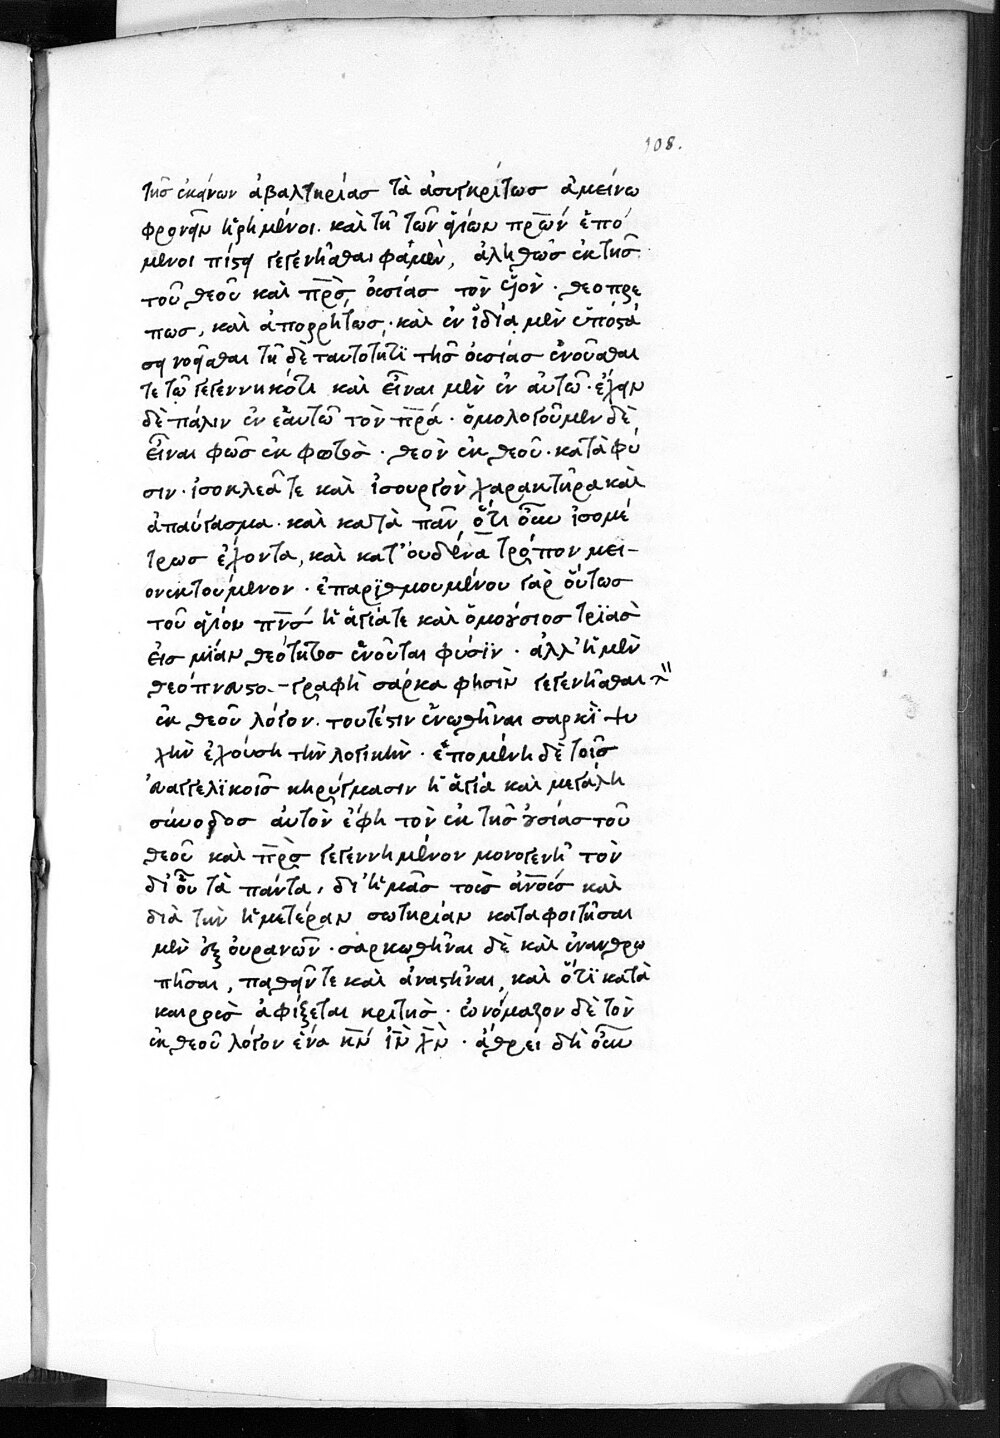 108.
τῆς ἐκείνων ἀβελτηρίας τὰ ἀσυγκρίτως ἀμείνω
φρονεῖν ᾑρημένοι· καὶ τῇ τῶν ἁγίων πρ̅ων ἑπό
μενοι πίστει γεγενῆσθαι φαμὲν, ἀληθῶς ἐκ τῆς
τοῦ θεοῦ καὶ πρ̅ς οὐσίας τὸν υἱόν· θεοπρε
πῶς, καὶ ἀπορρήτως· καὶ ἐν ἰδίᾳ μὲν ὑποστά
σει νοεῖσθαι τῇ δὲ ταυτότητι τῆς οὐσίας ἑνοῦσθαι
τε τῷ γεγεννηκότι καὶ εἶναι μὲν ἐν αὐτῷ· ἔχειν
δὲ πάλιν ἐν ἑαυτῷ τὸν πρ̅α· ὁμολογοῦμεν δὲ
εἶναι φῶς ἐκ φωτὸς· θεὸν ἐκ θεοῦ· κατὰ φύ
σιν· ἰσοκλεᾶ τε καὶ ἰσουργὸν χαρακτῆρα καὶ
ἀπαύγασμα· καὶ κατὰ πᾶν ὅτι οὖν ἰσομέ
τρως ἔχοντα, καὶ κατ' οὐδένα τρόπον μει-
ονεκτούμενον· ἐπαριθμουμένου γὰρ οὕτως
τοῦ ἁγίου πν̅ς ἡ ἁγία τε καὶ ὁμοούσιος τριὰς
εἰς μίαν θεότητος ἑνοῦται φύσιν· ἀλλ' ἡ μὲν
θεόπνευστο-γραφὴ σάρκα φησὶν γεγενῆσθαι τ
ἐκ θεοῦ λόγον· τουτέστιν ἑνωθῆναι σαρκὶ ψυ
χὴν ἐχούσῃ τὴν λογικὴν· ἑπομένη δὲ τοῖς
εὐαγγελικοῖς κηρύγμασιν ἡ ἁγία καὶ μεγάλη
σύνοδος αὐτὸν ἔφη τὸν ἐκ τῆς οὐσίας τοῦ
θεοῦ καὶ πρ̅ς γεγεννημένον μονογενῆ τὸν
δι' οὗ τὰ πάντα, δι' ἡμᾶς τοὺς ἀν̅ους καὶ
διὰ τὴν ἡμετέραν σωτηρίαν καταφοιτῆσαι
μὲν ἐξ οὐρανῶν· σαρκωθῆναι δὲ καὶ ἐνανθρω
πῆσαι, παθεῖν τε καὶ ἀναστῆναι, καὶ ὅτι κατὰ
καιροὺς ἀφίξεται κριτὴς· ὠνόμαζον δὲ τὸν
ἐκ θεοῦ λόγον ἕνα κ̅ν ἰ̅ν χ̅ν· ἄθρει δὴ οὖν